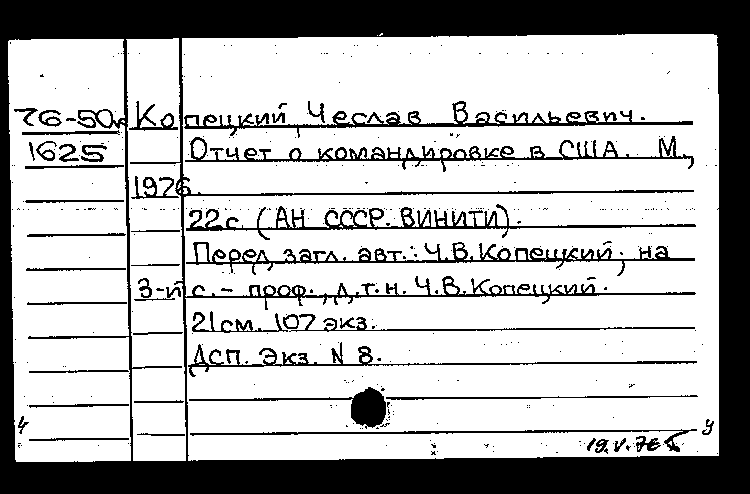 76-50дс Копецкий, Чеслав Васильевич.
1625 Отчет о командировке в США. М.,
1976.
22с. (АН СССР. ВИНИТИ).
Перед загл. авт.: Ч.В.Копецкий; на
3-й с. – проф., д.т.н. Ч.В.Копецкий.
21см. 107 экз.
Дсп. Экз. N 8.
19.V.76